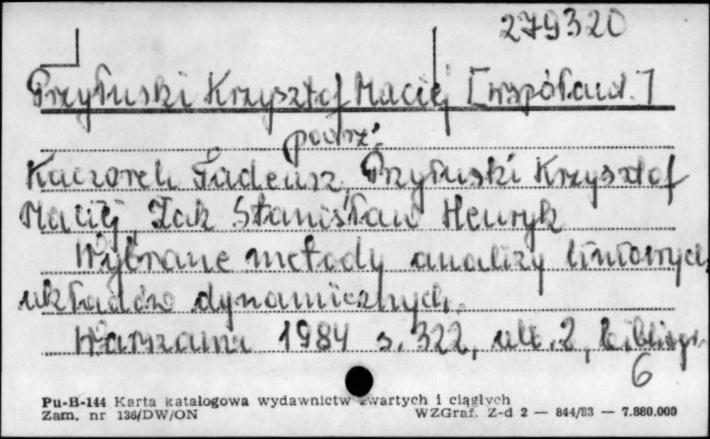 279320
Przyłuski Krzysztof Maciej [współaut.]
podrz.
Kaczorek Tadeusz, Przyłuski Krzysztof
Maciej, Żak Stanisław Henryk
Wybrane metody analizy liniowych
układów dynamicznych.
Warszawa 1984 s. 322, nlb. 2, bibliogr.
6
Pu-B-144 Karta katalogowa wydawnictw zwartych i ciągłych
Zam. nr 136/DW/ON WZGraf. Z-d 2 — 844/83 — 7.880.000